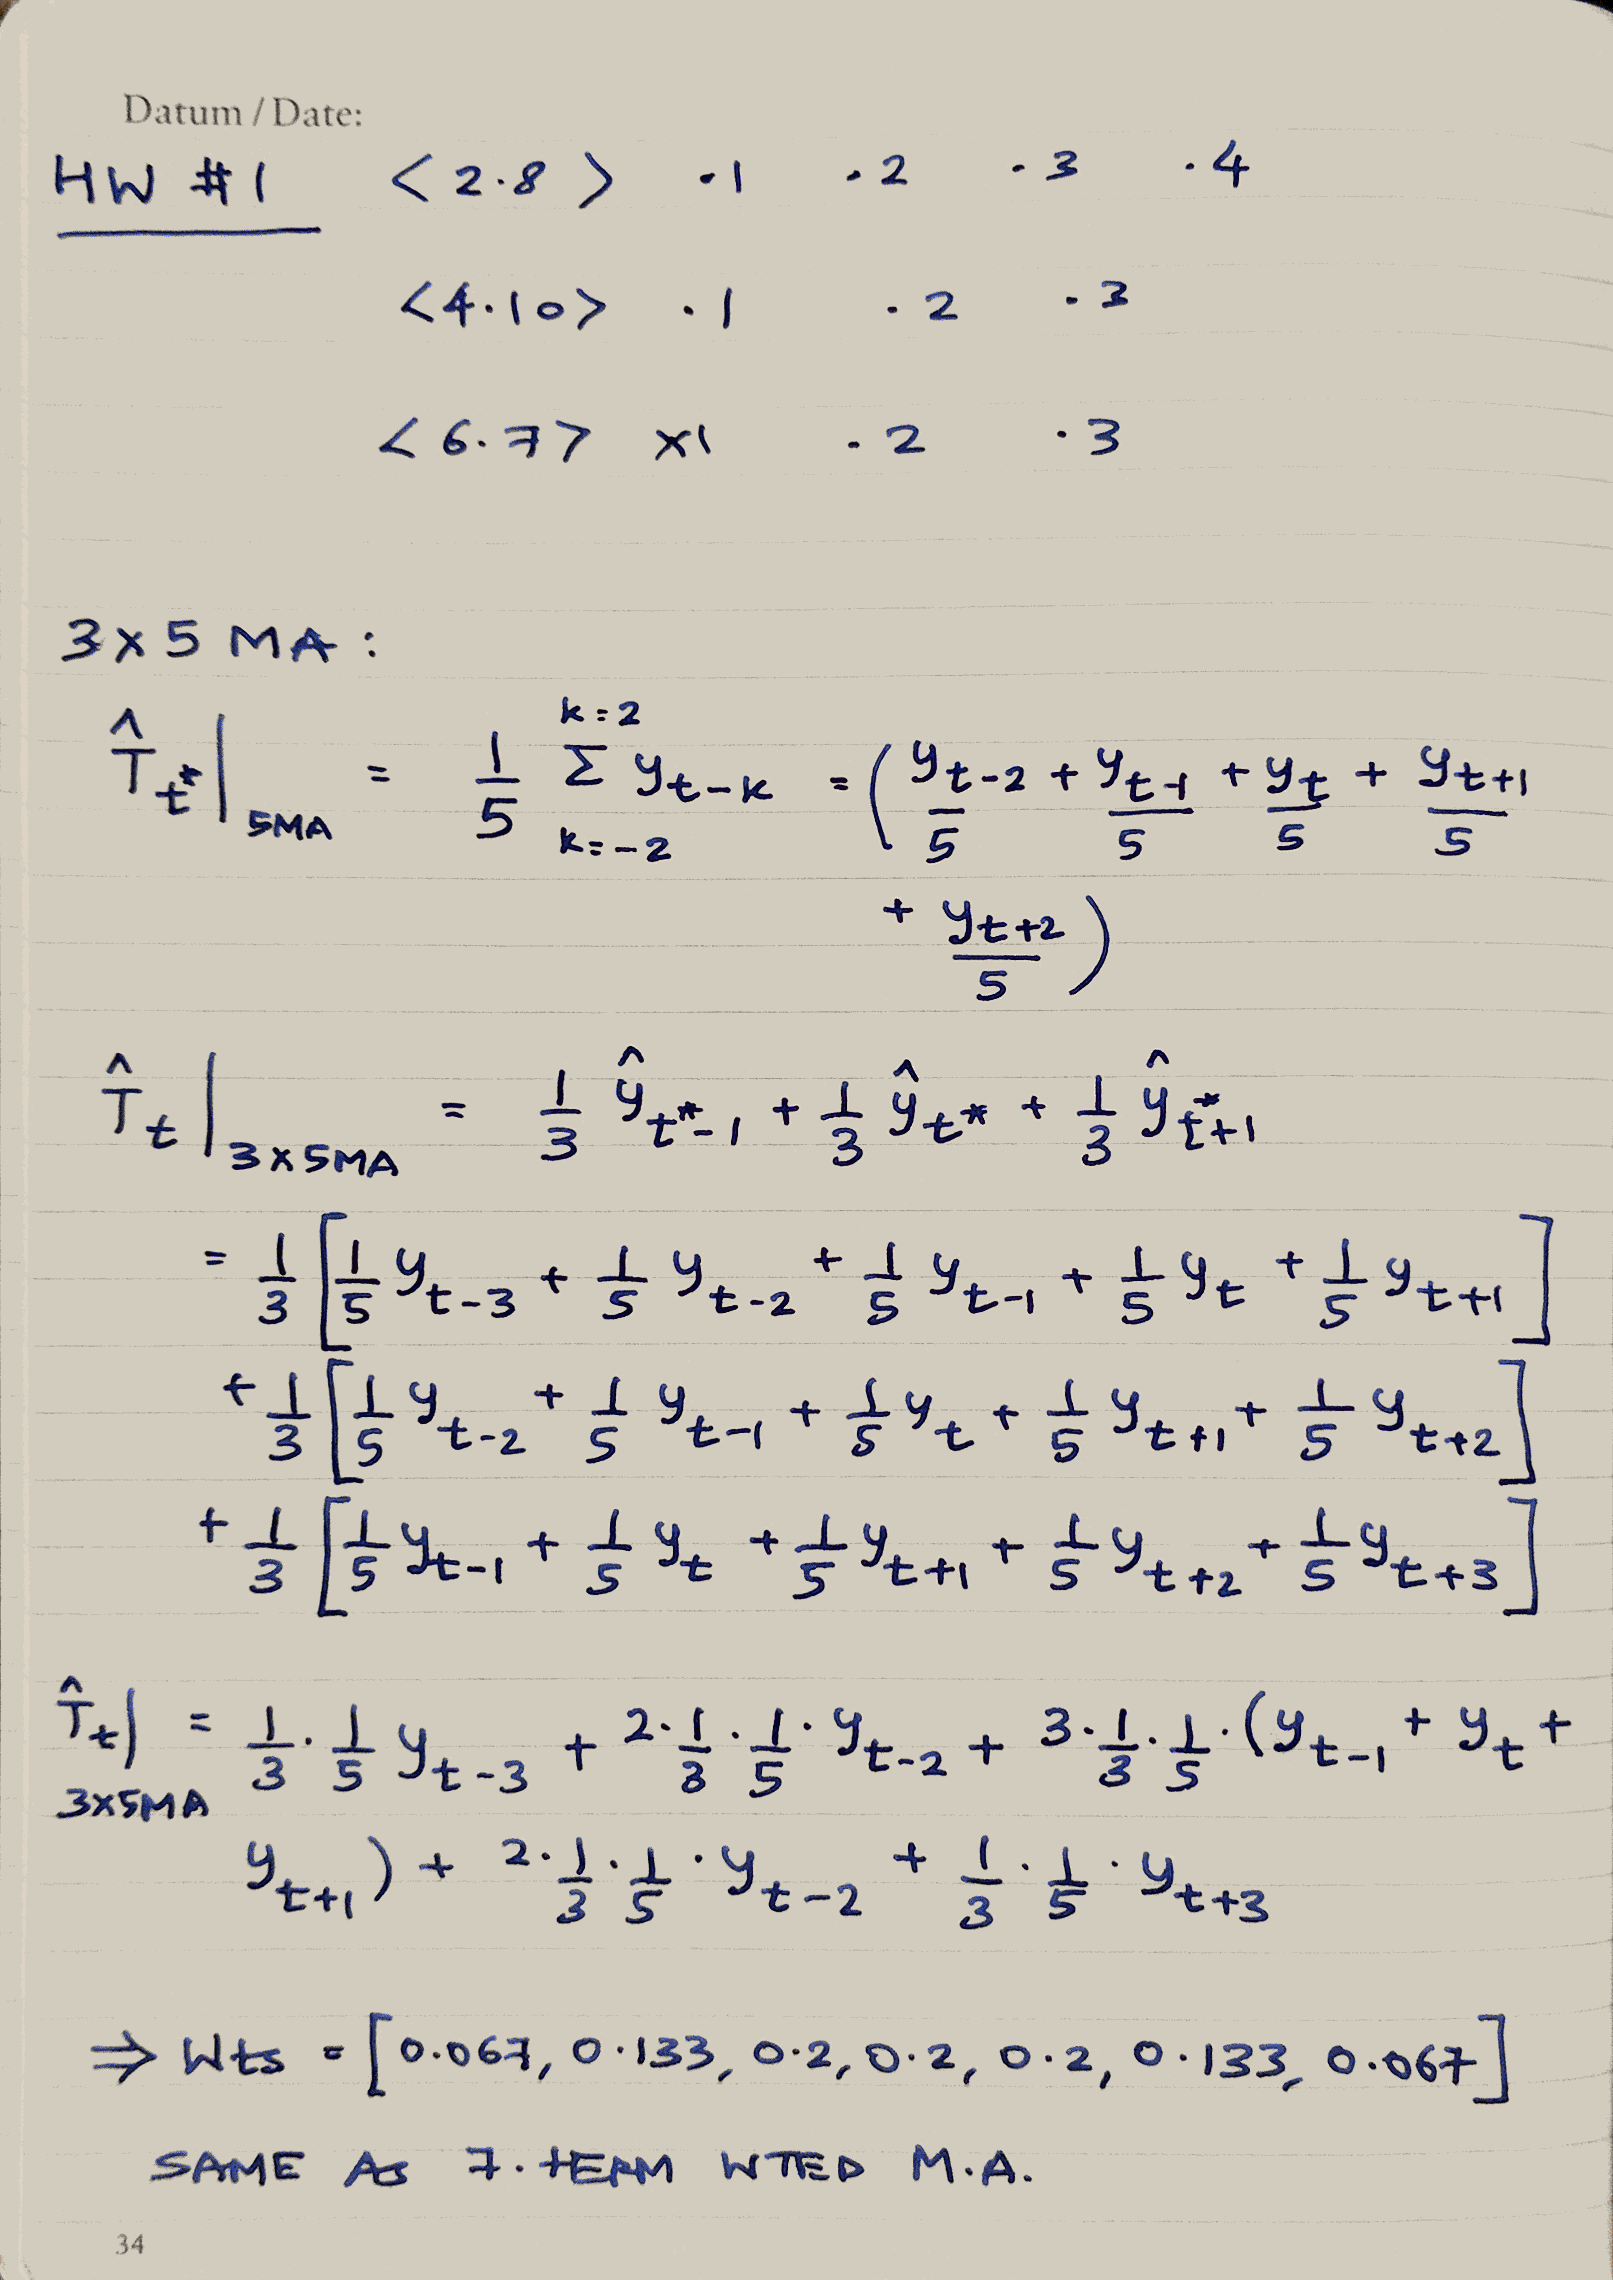 Datum / Date:
HW #1 <2.8> .1 .2 .3 .4
<4.10> .1 .2 .3
<6.7> x1 .2 .3
3x5 MA:
T̂_t*|_5MA = 1/5 Σ_{k=-2}^{k=2} y_{t-k} = (y_{t-2}/5 + y_{t-1}/5 + y_t/5 + y_{t+1}/5
+ y_{t+2}/5)
T̂_t|_3x5MA = 1/3 ŷ_{t*-1} + 1/3 ŷ_{t*} + 1/3 ŷ_{t*+1}
= 1/3 [1/5 y_{t-3} + 1/5 y_{t-2} + 1/5 y_{t-1} + 1/5 y_t + 1/5 y_{t+1}]
+ 1/3 [1/5 y_{t-2} + 1/5 y_{t-1} + 1/5 y_t + 1/5 y_{t+1} + 1/5 y_{t+2}]
+ 1/3 [1/5 y_{t-1} + 1/5 y_t + 1/5 y_{t+1} + 1/5 y_{t+2} + 1/5 y_{t+3}]
T̂_t|_3x5MA = 1/3 · 1/5 y_{t-3} + 2 · 1/3 · 1/5 · y_{t-2} + 3 · 1/3 · 1/5 · (y_{t-1} + y_t +
y_{t+1}) + 2 · 1/3 · 1/5 · y_{t-2} + 1/3 · 1/5 · y_{t+3}
⇒ Wts = [0.067, 0.133, 0.2, 0.2, 0.2, 0.133, 0.067]
SAME AS 7.tERM WTED M.A.
34